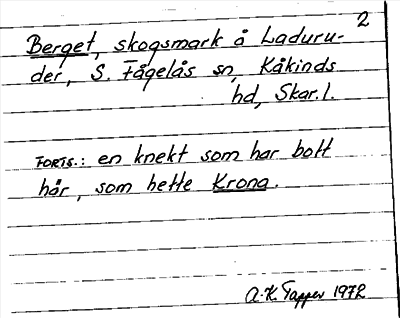 2
Berget, skogsmark å Laduru-
der, S. Fågelås sn, Kåkinds
hd, Skar. l.
FORTS.: en knekt som har bott
här, som hette Krona.
A-K. Tapper 1972